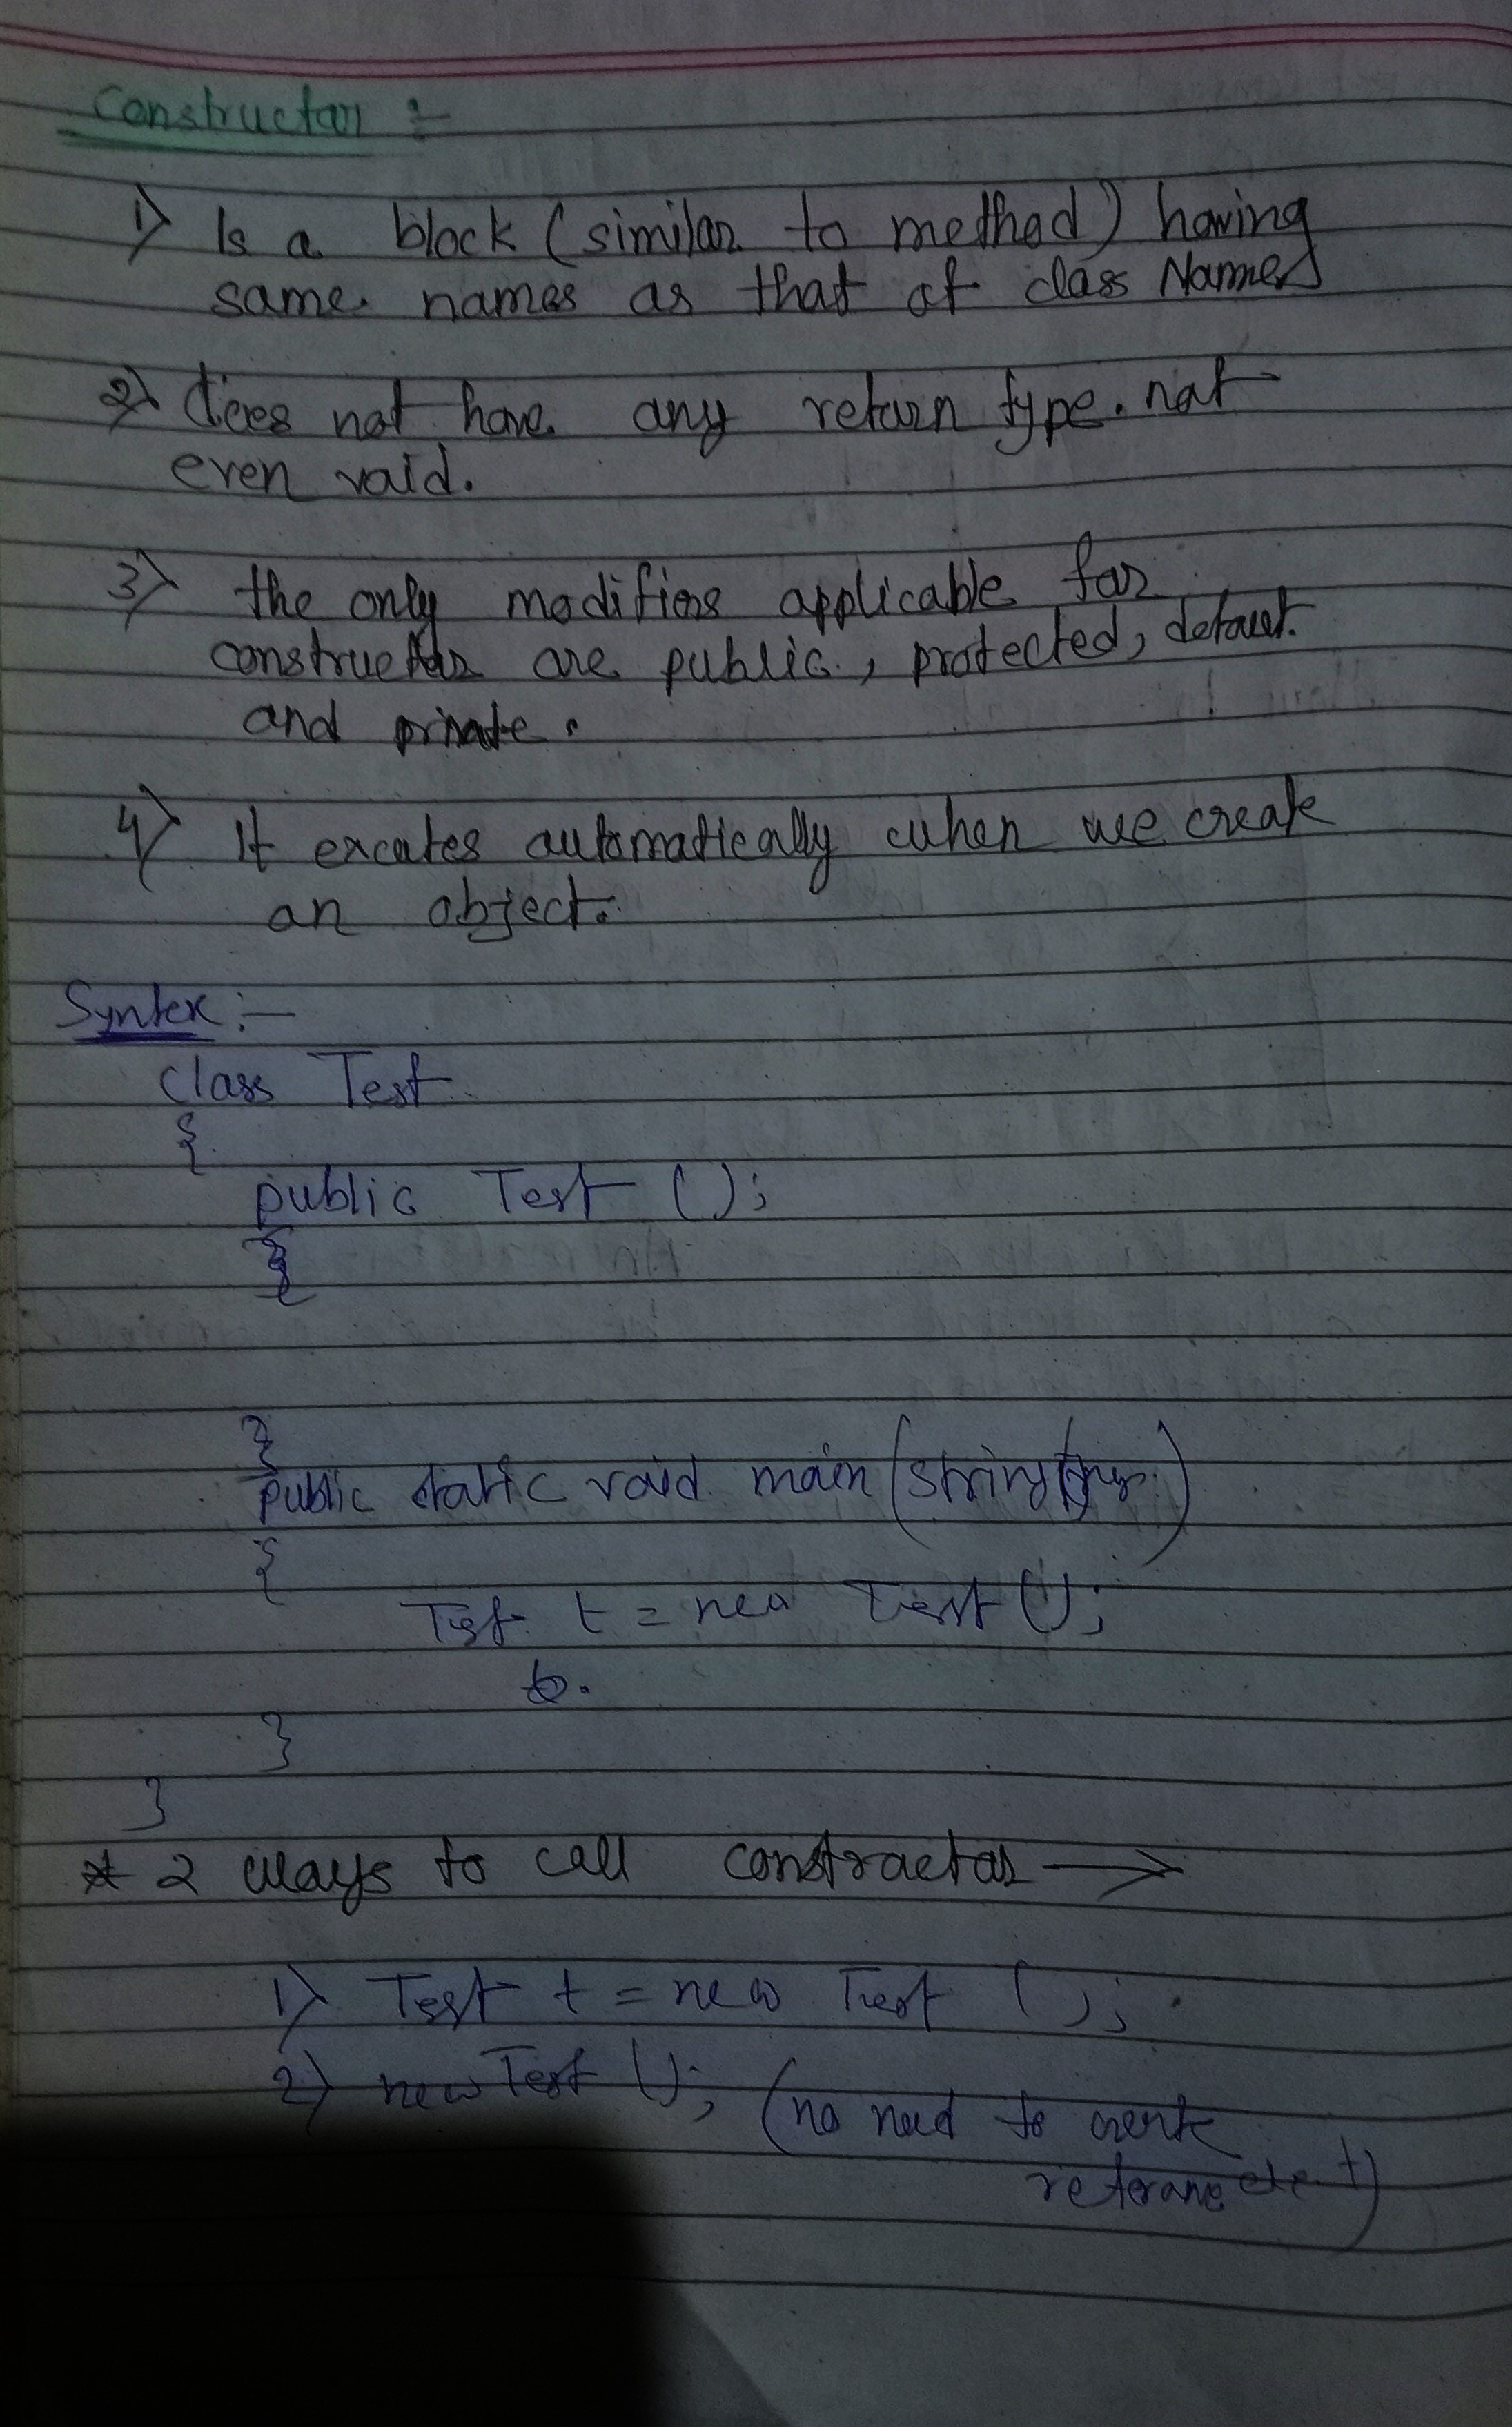 Constructor :-
1) Is a block (similar to method) having
same names as that of class Names
2) does not have any return type. not
even void.
3) the only modifiers applicable for
constructor are public, protected, default
and private.
4) It excutes automatically when we create
an object.
Syntex :-
class Test
{
public Test ();
{
}
public static void main (string
{
Test t = new Test ();
t.
}
}
* 2 ways to call constructor →
1) Test t = new Test ();
2) new Test (); (no need to create
referance t)